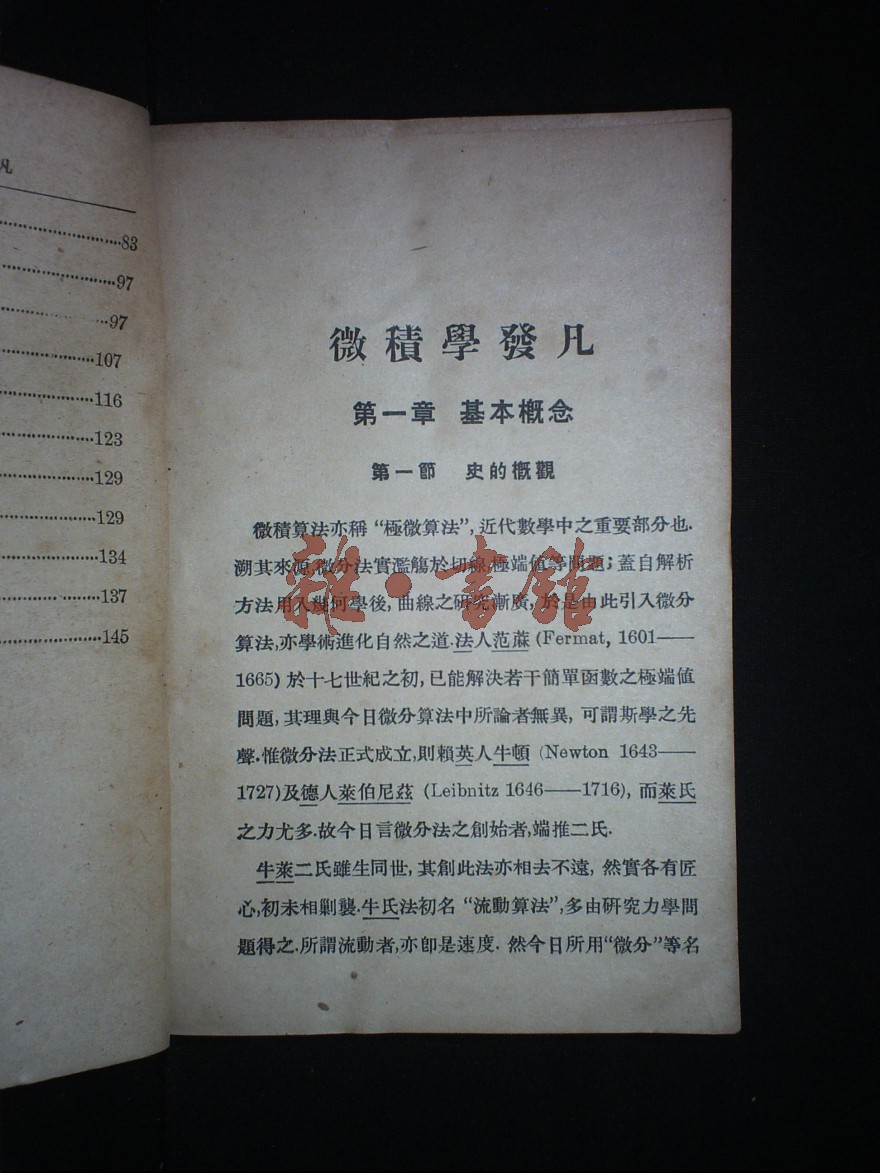 凡
83
97
97
107
116
123
129
129
134
137
145
微積學發凡
第一章 基本概念
第一節 史的概觀
微積算法亦稱“極微算法”,近代數學中之重要部分也.
溯其來源,微分法實濫觴於切線,極端值等問題;蓋自解析
方法用入幾何學後,曲線之研究漸廣,於是由此引入微分
算法,亦學術進化自然之道.法人范蔴(Fermat, 1601——
1665)於十七世紀之初,已能解決若干簡單函數之極端値
問題,其理與今日微分算法中所論者無異,可謂斯學之先
聲.惟微分法正式成立,則賴英人牛頓(Newton 1643——
1727)及德人萊伯尼茲(Leibnitz 1646——1716),而萊氏
之力尤多.故今日言微分法之創始者,端推二氏.
牛萊二氏雖生同世,其創此法亦相去不遠,然實各有匠
心,初未相剿襲.牛氏法初名“流動算法”,多由研究力學問
題得之.所謂流動者,亦卽是速度.然今日所用“微分”等名
雜·書館